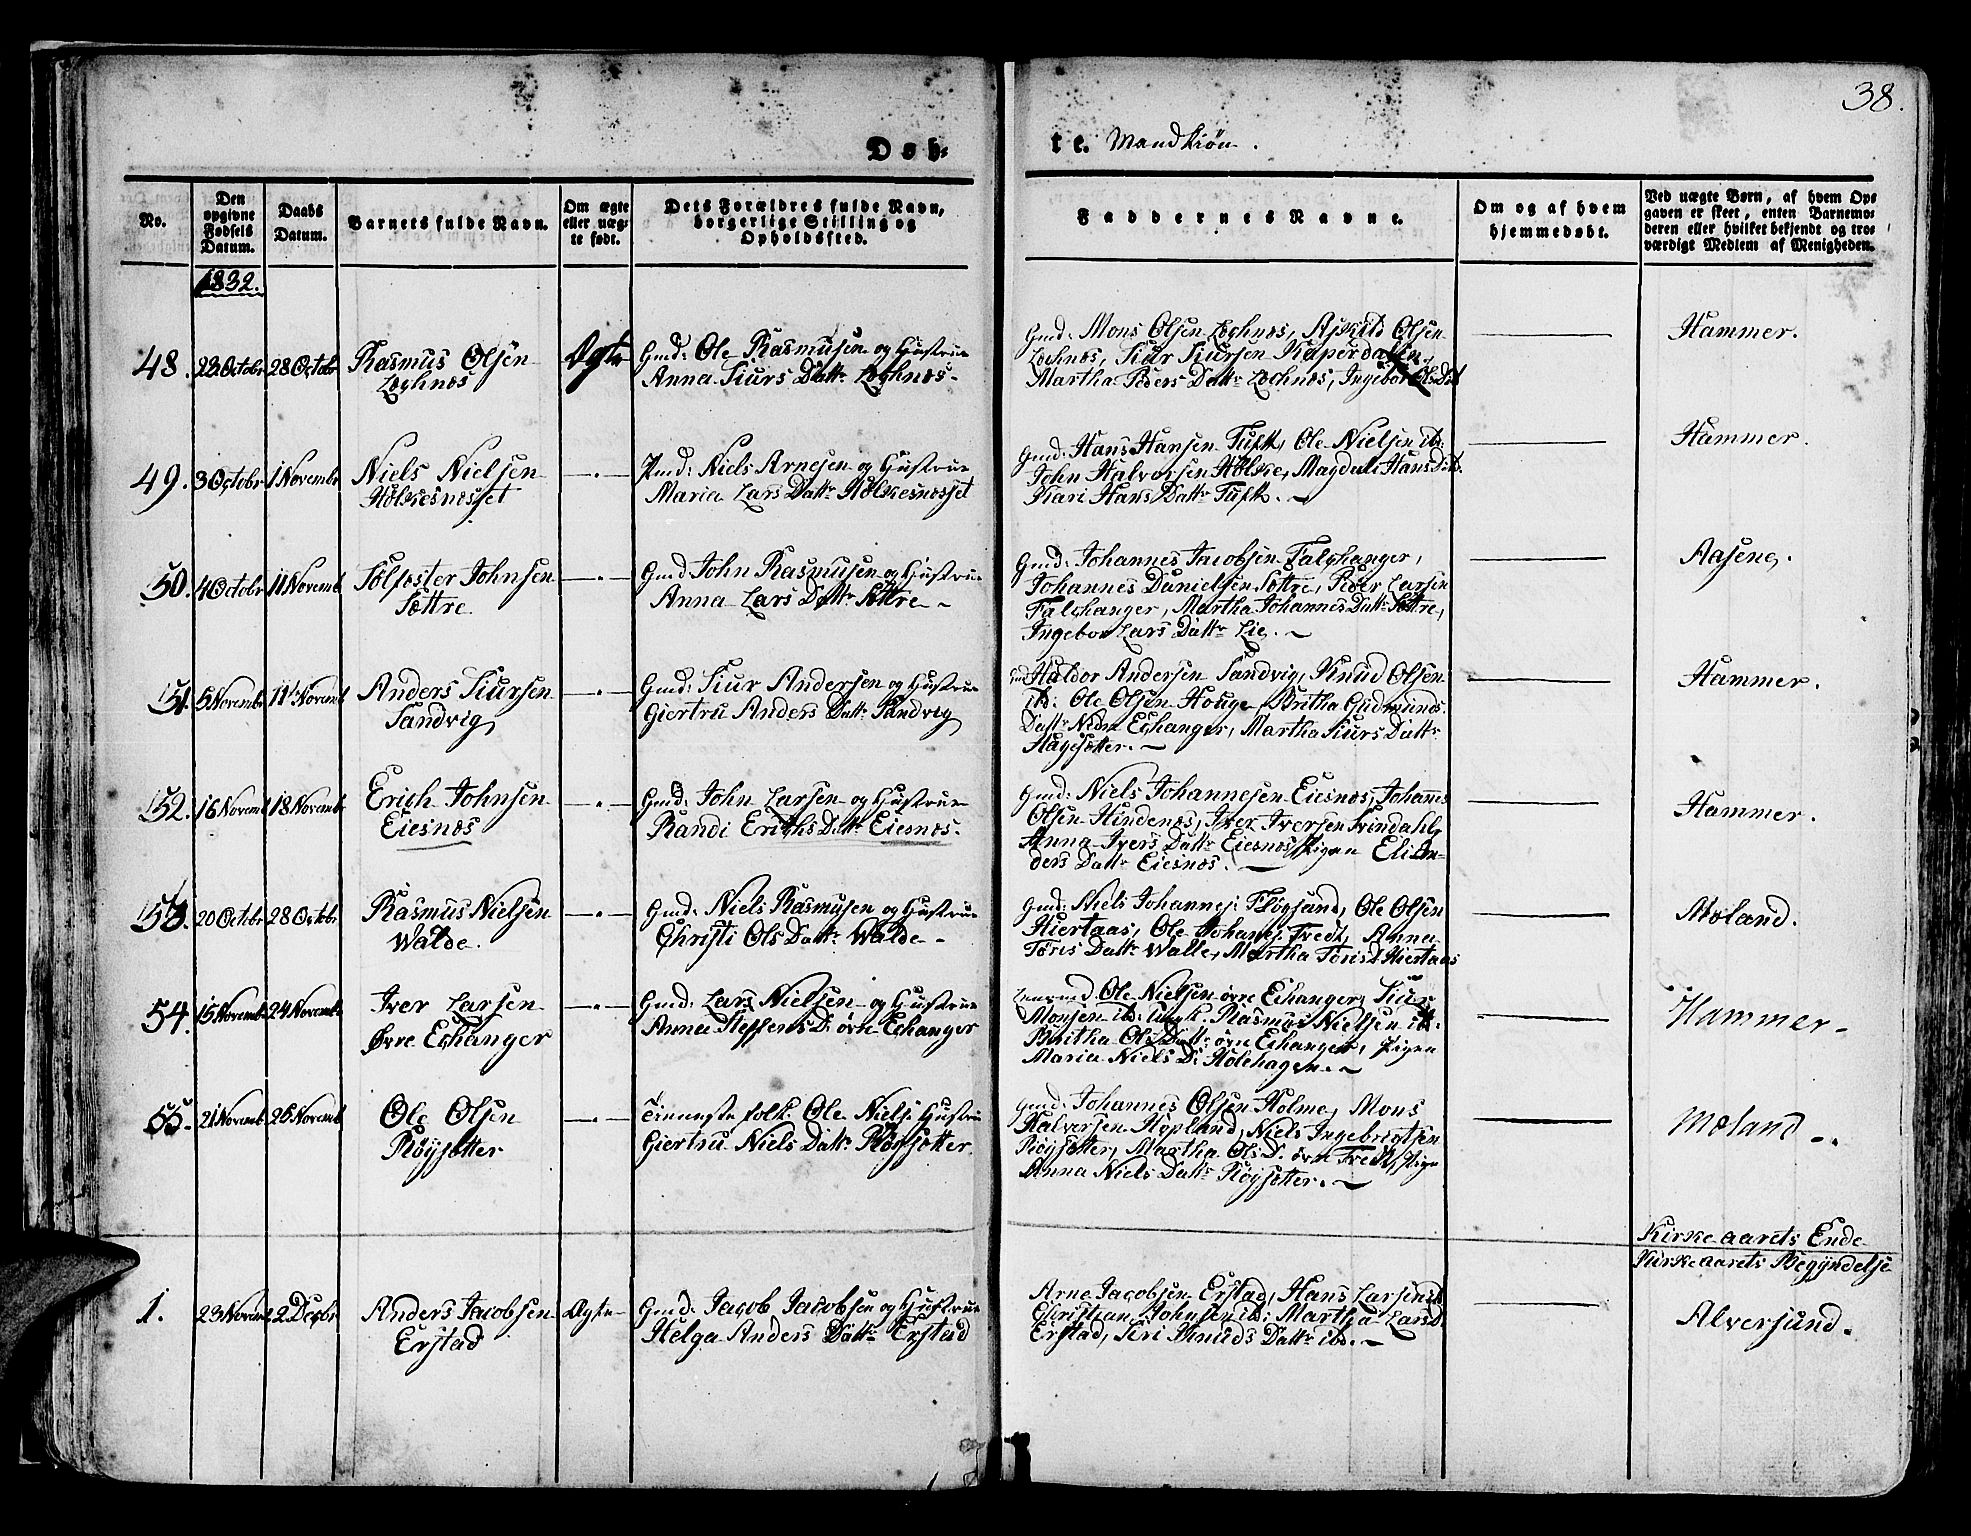 38.
Døb-
te. Mandkiøn.
No.
Den opgivne Fødsels Datum.
Daabs Datum.
Barnets fulde Navn.
Om ægte eller uægte født.
Dets Forældres fulde Navn, borgerlige Stilling og Opholdssted.
Faddernes Navne.
Om og af hvem hjemmedøbt.
Ved uægte Børn, af hvem Opgaven er skeet, enten Barnemoderen eller hvilket bekjendt og troværdigt Medlem af Menigheden.
1832.
48. 23 Octobr 28 Octbr
Rasmus Olsen
Lechnæs
Ægte
Gmd: Ole Rasmusen og Hustrue
Anna Siurs Datt: Lechnæs.
Gmd: Mons Olsen Lechnæs, Askild Olsen
Lechnæs, Siur Siursen Kaperdalen,
Martha Peders Datt: Lechnæs, Ingebor Ols Dat
Hammer.
49. 3 Octobr 1 Novembr
Niels Nielsen
Hølkesnæsset
Niels Arnesen og Hustrue
Maria Lars Datt: Hølkesnæsset
Gmd: Hans Hansen Tuft, Ole Nielsen ib:
John Halvorsen Hølke, Magdale Hans Datt:
Kari Hans Datt: Tuft.
Hammer.
50. 4 Octobr 11 Novemb
Sølfæster Johnsen
Sættre
Gmd: John Rasmusen og Hustrue
Anna Lars Datt: Sættre
Gmd: Johannes Jacobsen Falchanger,
Johannes Danielsen Sættre, Peder Larsen
Falchanger, Martha Johannes Datt: Sættre,
Ingebor Lars Datt: Lie.
Aasene.
51. 5 Novembr 11 Novemb
Anders Siursen
Sandvig
Gmd: Siur Andersen og Hustrue
Giertru Anders Datt: Sandvig
Gmd: Haldor Andersen Sandvig, Knud Olsen
ib: Ole Olsen Houge, Britha Gudmunds
Datt: Nedre Echanger, Martha Siurs Datt:
Hagesætter.
Hammer.
52. 16 Novemb 18 Novemb
Erich Johnsen
Eiesnæs
Gmd: John Larsen og Hustrue
Randi Erichs Datt: Eiesnæs.
Gmd: Niels Johannesen Eiesnæs, Johannes
Olsen Hindenæs, Iver Iversen Svindahl,
Anna Ivers Datt: Eiesnæs, Pigen Eli En-
ders Datt: Eiesnæs.
Hammer.
53. 20 Octobr 28 Octbr
Rasmus Nielsen
Walde.
Gmd: Niels Rasmusen og Hustrue
Christi Ols Datt: Walde
Gmd: Niels Johannes: Fløgsand, Ole Olsen
Hiertaas, Ole Johanes: Tvedt, Anna
Tøris Datt: Walle, Martha Tøris D Hiertaas
Mæland.
54. 15 Novemb 24 Novemb
Iver Larsen
Øvre Echanger
Gmd: Lars Nielsen og Hustrue
Anna Steffens D: øvre Echanger
Ole Nielsen øvre Echanger, Siur
Monsen ib: Rasmus Nielsen ib:
Britha Ols Datt: øvre Echanger, Pigen
Maria Niels D: Hølehagen.
Hammer
55. 21 Novemb 25 Novemb
Ole Olsen
Røysætter
folk Ole Niels: Hustrue
Giertru Niels Datt: Røysætter.
Gmd: Johannes Olsen Holme, Mons
Halversen Hopland, Niels Ingebrigtsen
Røysætter, Martha Ols D. øvre Tvedt, Pigen
Anna Niels Datt: Røysætter.
Mæland
Kirke aarets Ende
Kirke aarets Begyndelse
1. 23 Novem 2 Decbr
Anders Jacobsen
Erstad
Ægte
Gmd: Jacob Jacobsen og Hustrue
Helga Anders Datt: Erstad
Arne Jacobsen Erstad, Hans Larsen ib
Christian Johnsen ib: Martha Lars D
Erstad, Siri Knuds Datt: ib.
Alversund.